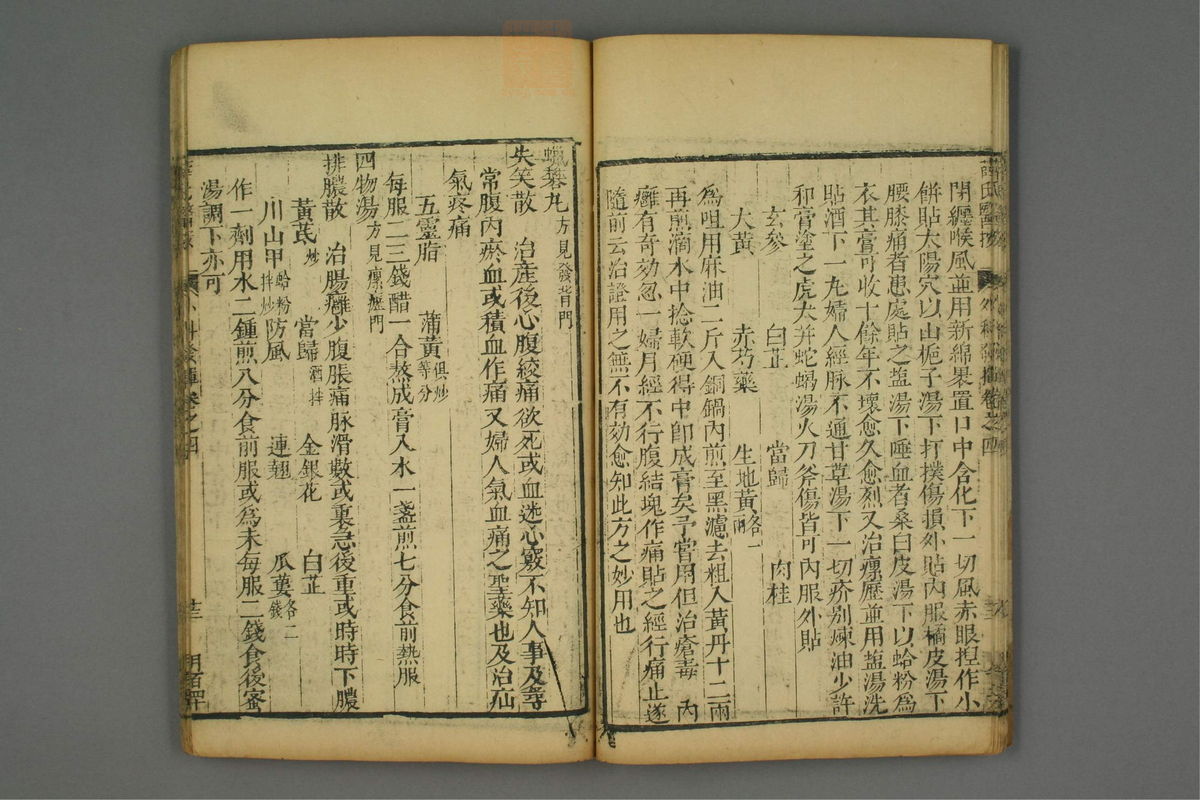 閉纏喉風並用新綿裹置口中含化下一切風赤眼揑作小
餅貼太陽穴以山梔子湯下打撲傷損外貼內服橘皮湯下
腰膝痛者患處貼之盐湯下唾血者桑白皮湯下以蛤粉為
衣其膏可收十餘年不壞愈久愈烈又治瘰癧並用盐湯洗
貼酒下一丸婦人經脉不通甘草湯下一切疥别煉油少許
和膏塗之虎犬并蛇蝎湯火刀斧傷皆可內服外貼
玄參 白芷 當歸 肉桂
大黃 赤芍藥 生地黃各一兩
為咀用麻油二斤入銅鍋內煎至黑濾去粗入黃丹十二兩
再煎滴水中捻軟硬得中卽成膏矣予嘗用但治瘡毒 內
癰有奇効忽一婦月經不行腹結塊作痛貼之經行痛止遂
隨前云治證用之無不有効愈知此方之妙用也
蠟礬丸方見發背門
失笑散 治產後心腹絞痛欲死或血迷心竅不知人事及尋
常腹內瘀血或積血作痛又婦人氣血痛之聖藥也及治疝
氣疼痛
五靈脂 蒲黃俱炒等分
每服二三錢醋一合熬成膏入水一盞煎七分食前熱服
四物湯方見瘰癧門
排膿散 治腸癰少腹脹痛脉滑數或裏急後重或時時下膿
黃芪炒 當歸酒拌 金銀花 白芷
川山甲蛤粉拌炒 防風 連翹 瓜蔞各二錢
作一劑用水二鍾煎八分食前服或為末每服二錢食後蜜
湯調下亦可